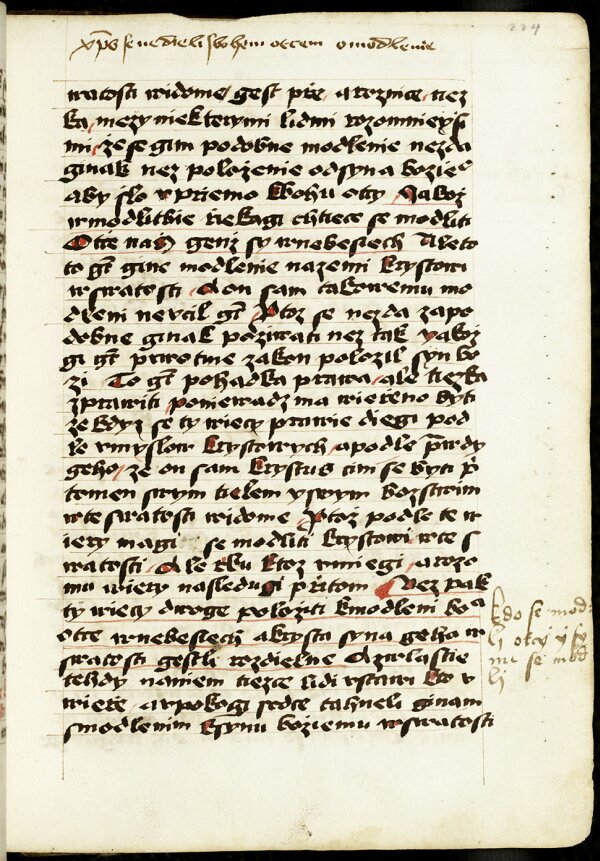 224
xps se nedieli s bohem otcem o modlenie
swatosti widome gest prze a roznice nez
ka mezy niekterymi lidmi rozomnieyss
mi ze se gim podobne modlenie nezda
ginak nez polozenie od syna bozieo
aby sslo vpriemo kbohu otcy Jakoz
w modlitbie riekagi chtiece se modliti
Otcze nass genz sy w nebesiech Ale to
to gt gine modlenie na zemi krystowi
w swatosti A on sam takowemu mo
dleni nevcil gt Ptoz se nezda zapo
dobne ginak poziwati nez tak yakoz
gi gt prwotnie zakon polozil syn bo
zi To gt pohadka prawa ale tiezka
zprawiti poniewadz ma wierzeno byti
ze kdyz se ty wiecy prawie diegi pod
le vmyslow krystowych a podle prawdy
geho ze on sam krystus tim se byti prz
tomen swym tielem y swym bozstwim
w te swatosti widome Ptoz podle te w
iery magi se modliti krystowi w te s
watosti Ale rku ktoz vmiegi a rozo
mu wiery nasledugi przitom Nez pak
ty wiecy dwoge poloziti k modleni boa
otce w nebesiech a krysta syna geho w
swatosti gestli rozdielne a zwlastie
tehdy na niem tiezce lidi vstawi kto v
wierze a vpokogi srdce tahneli ginam
s modlenim k synu boziemu w swatosti
kdo se mod
li otcy y sy
nu se mod
li